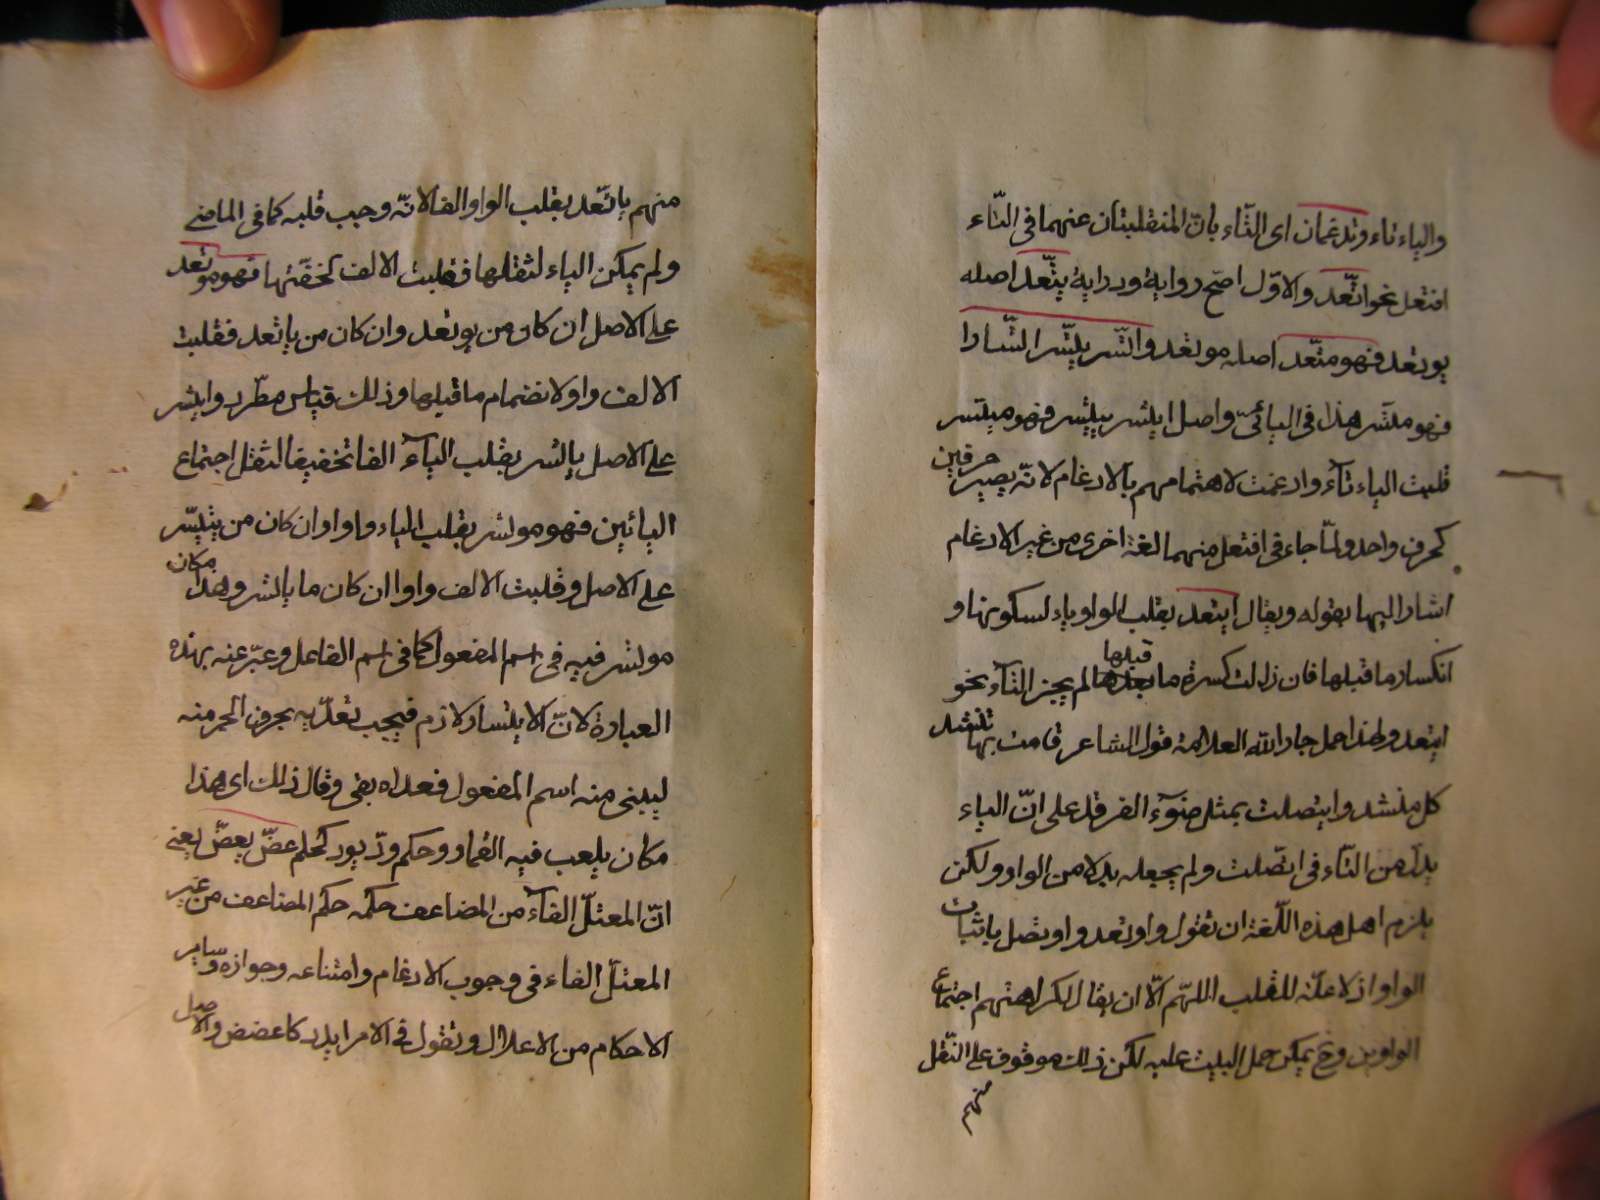 والياء تاء وتدغمان اى التاء بان المنقلبتان عنهما فى التاء
افتعل نحو اتّعد والاوّل اصحّ رواية ودراية يتّعد اصله
يوتعد فهو متّعد اصله موتعد واتّسر يتّسر اتّسارا
فهو متّسر هذا فى اليائىّ واصل ايتسر ييتسر فهو ميتسر
قلبت الياء تآء وادغمت لاهتمامهم بالادغام لانّه يصير حرفين
كحرف واحد ولمّا جاء فى افتعل منهما لغة اخرى من غير الادغام
اشار اليها بقوله ويقال ايتعد بقلب الواو ياء لسكونها و
انكسار ما قبلها فان زالت كسرة ما قبلها لم يجز التآء نحو
ايتعد ولهذا حمل جار الله العلامة قول الشاعر قامت بها تنشد
كل منشد وايتصلت بمثل ضوء الفرقد على انّ الياء
بدل من التآء فى اتّصلت ولم يجعله بدلا من الواو ولكن
يلزم اهل هذه اللّغة ان تقول واوتعد واوتصل باثبات
الواو اذ لا علّة للقلب اللهمّ الّا ان يقال لكراهتهم اجتماع
الواوين وح يمكن حمل البيت عليه لكن ذلك موقوف على النّقل
منهم
منهم ياتعد بقلب الواو الفا لانّه وجب قلبه كما فى الماضى
ولم يمكن الياء لثقلها فقلبت الالف لخفّتها فهو موتعد
على الاصل ان كان من يوتعد وان كان من ياتعد فقلبت
الالف واوا لانضمام ما قبلها وذلك قياس مطّرد وايتسر
على الاصل ياتسر بقلب اليآء الفا تخفيفا لثقل اجتماع
اليائين فهو موتسر بقلب الياء واوا وان كان من ييتسر
على الاصل وقلبت الالف واوا ان كان ما ياتسر وهذا مكان
موتسر فيه فى اسم المفعول كما فى اسم الفاعل وعبّر عنه بهذه
العبارة لانّ الايتسار لازم فيجب تعدّيه بحرف الجر منه
ليبنى منه اسم المفعول فعداه بفى وقال ذلك اى هذا
مكان يلعب فيه القمار وحكم ودّ يود كحكم عضّ يعضّ يعنى
انّ المعتلّ الفآء من المضاعف حكمه حكم المضاعف من غير
المعتلّ الفاء فى وجوب الادغام وامتناعه وجوازه وساير
الاحكام من الاعلال وتقول فى الامر ايدد كاعضض والاصل